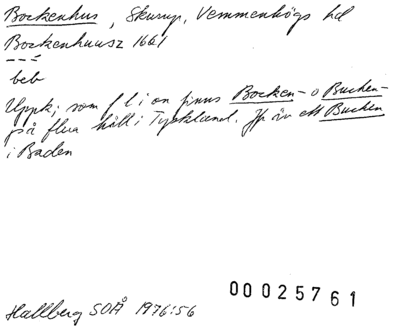 Bockenhus, Skurup, Vemmenhögs hd
Bockenhuusz 1661
beb
Uppk; som f l i on finns Bocken- o Buchen-
på flera håll i Tyskland. Jfr äv ett Buchen
i Baden
Hallberg SOÅ 1976:56
00025761